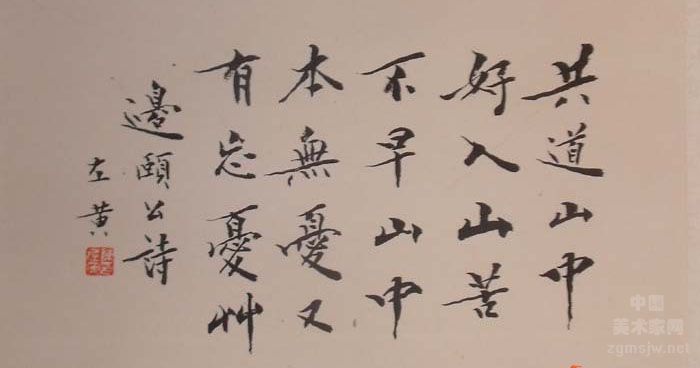 共道山中
好入山苦
不早山中
本無憂又
有忘憂艸
邊頤公詩
左黄
中国
美术家网
zgmsjw.net